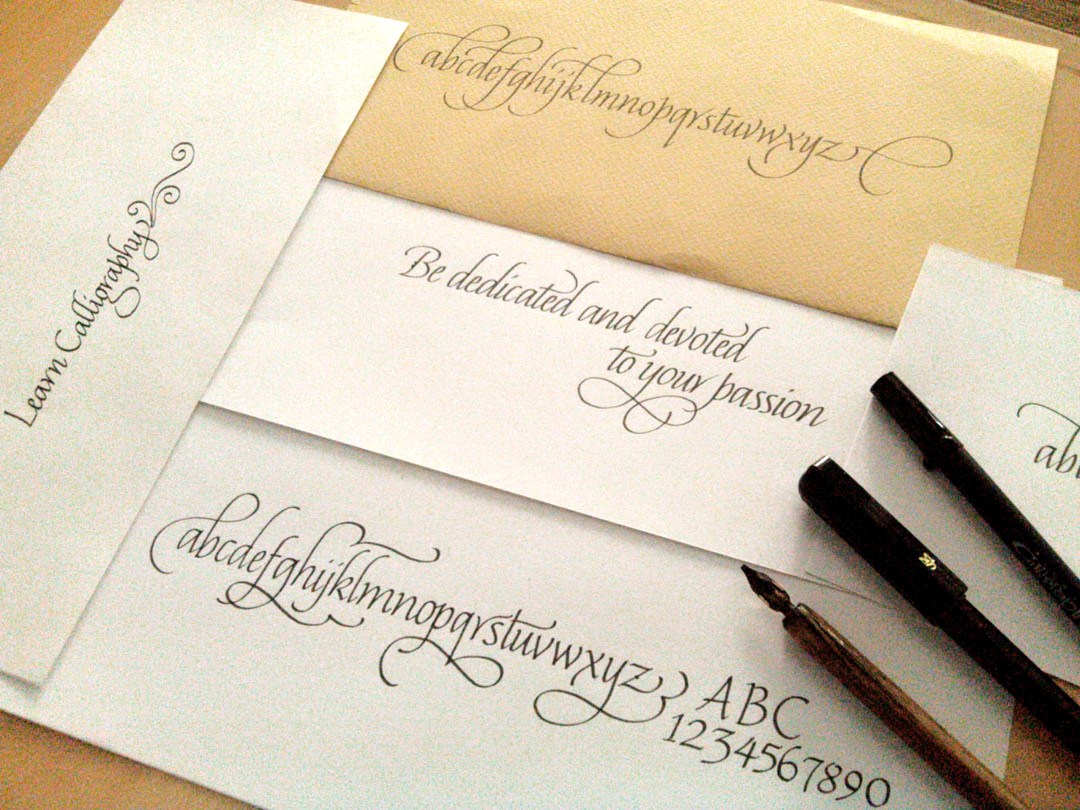 abcdefghijklmnopqrstuvwxyz
Learn Calligraphy
Be dedicated and devoted
to your passion
ab
abcdefghijklmnopqrstuvwxyz
ABC
1234567890